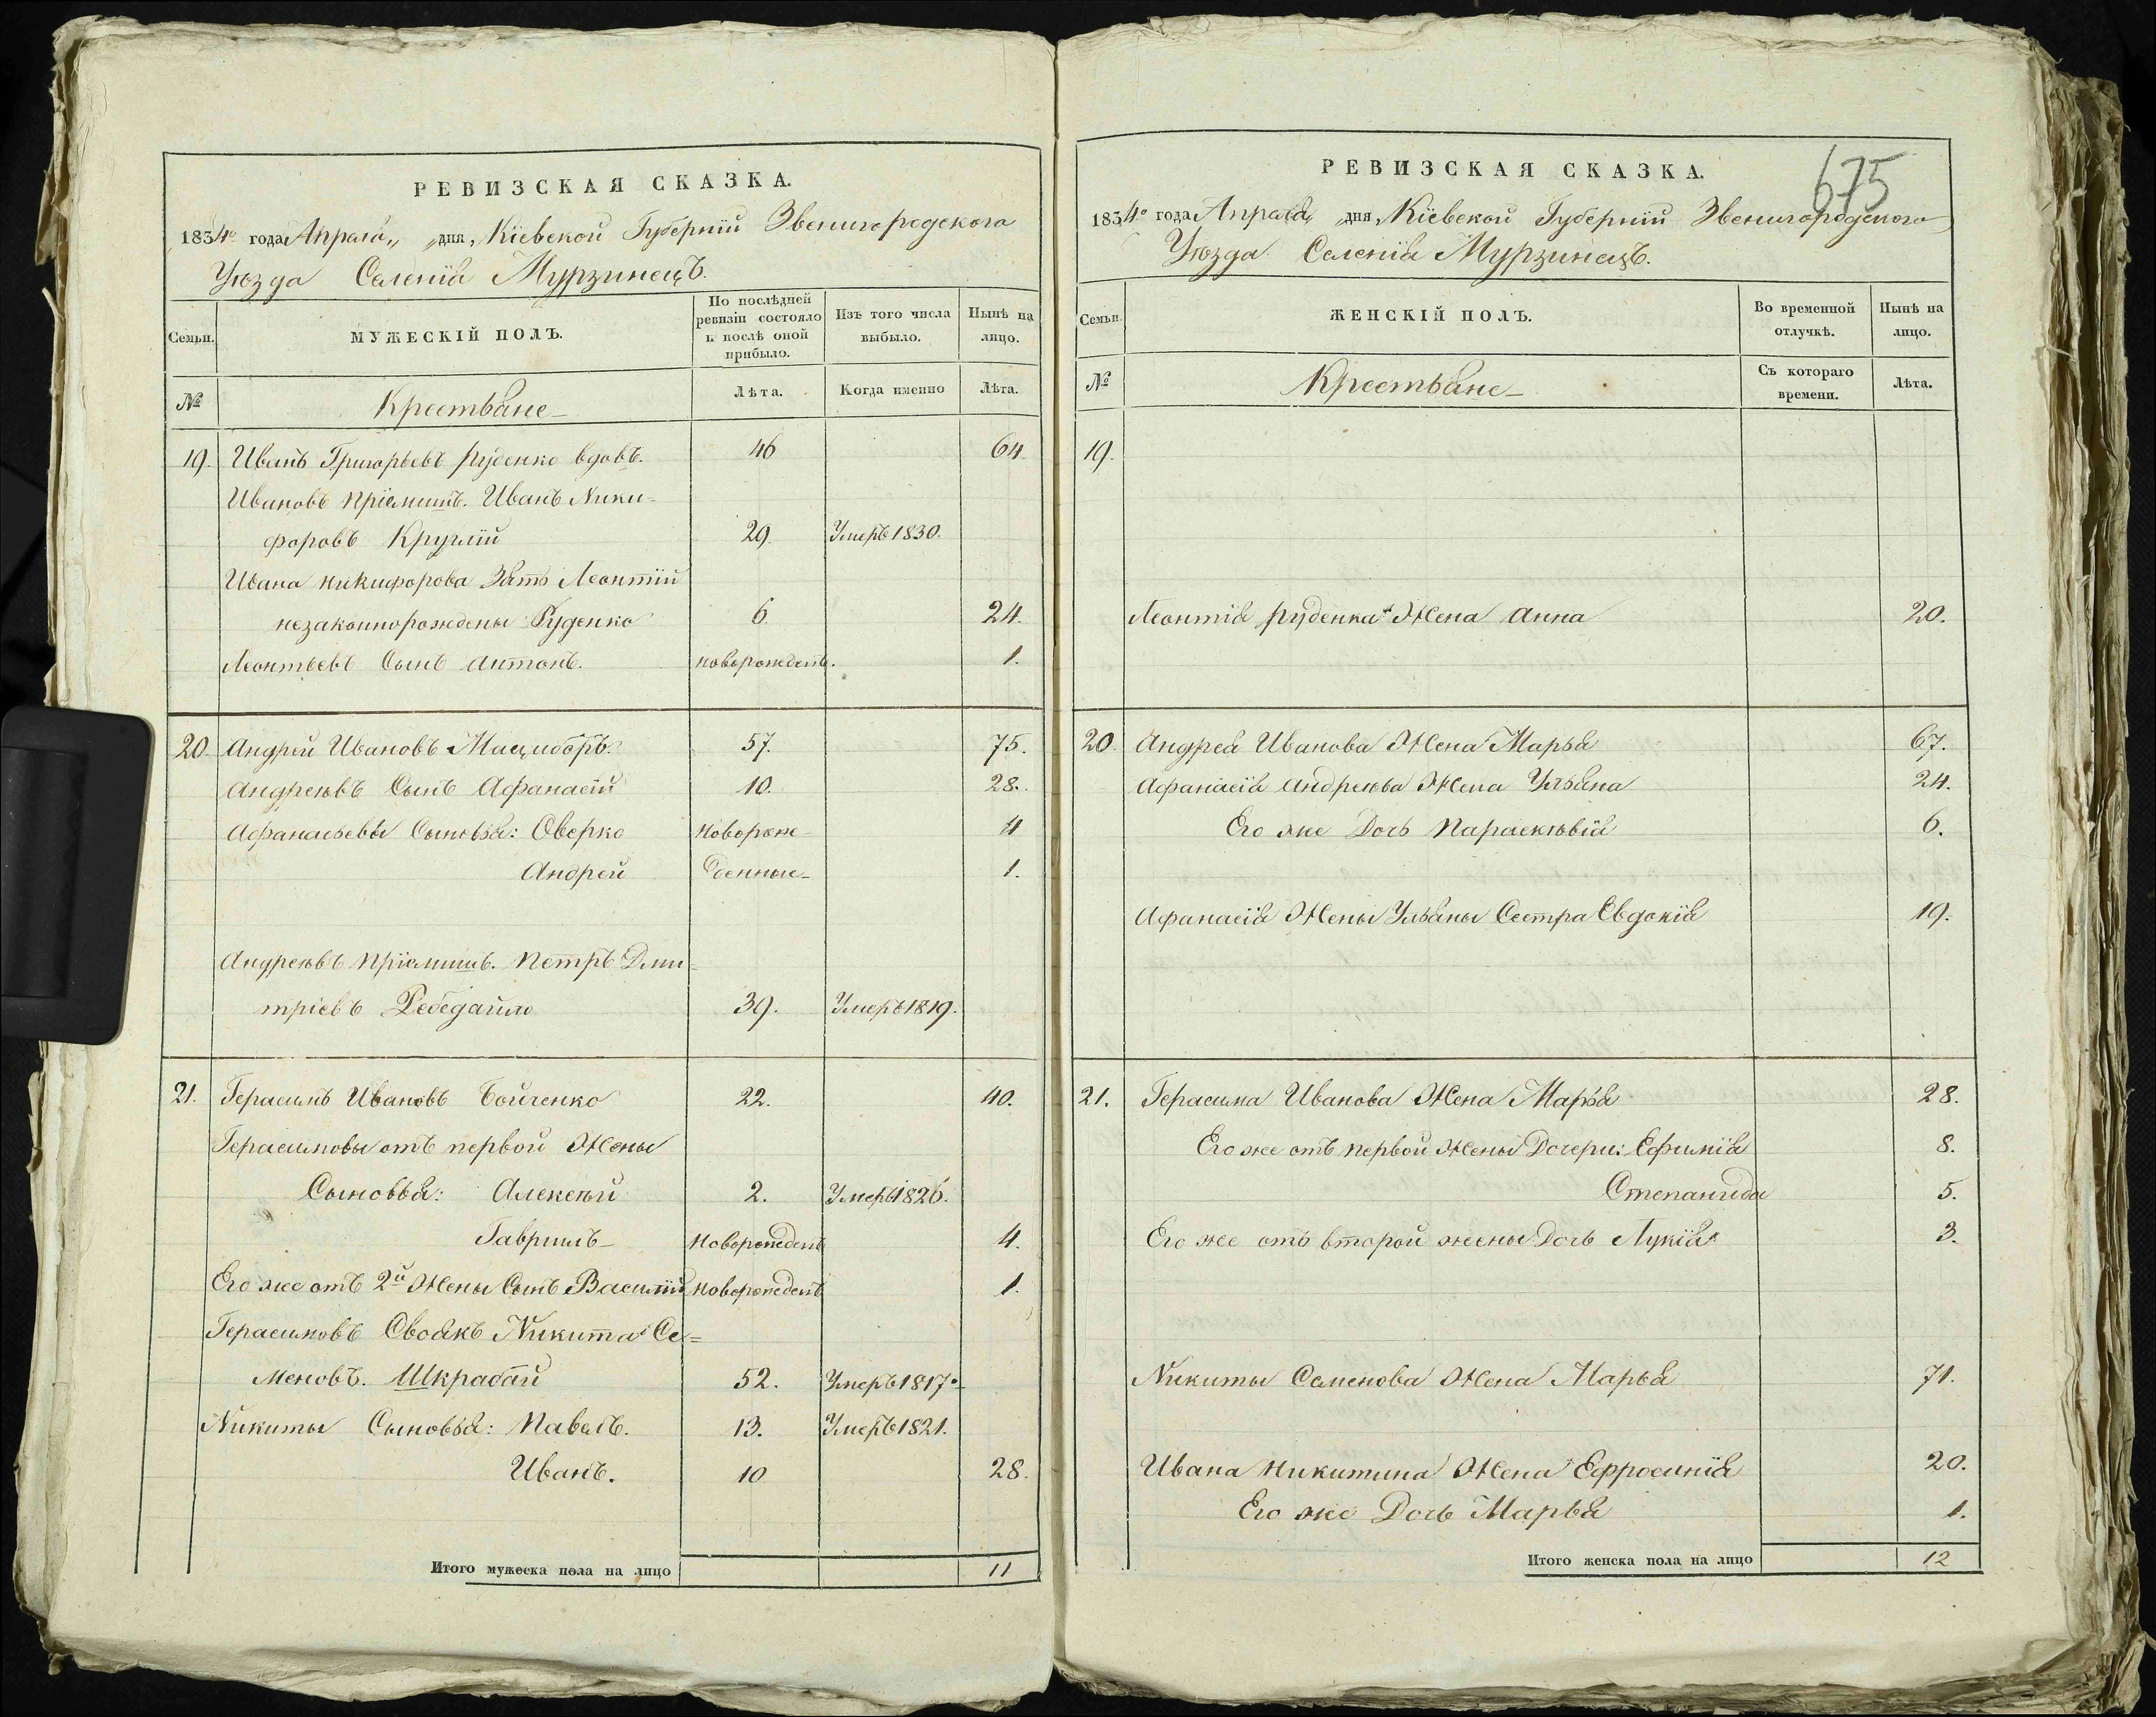 РЕВИЗСКАЯ СКАЗКА.
1834го года Апреля „ „ дня, Кіевской Губерніи Звенигородского
Уѣзда Селенія Мурзинецъ.
Семьи.
МУЖЕСКІЙ ПОЛЪ.
По послѣдней ревизіи состояло и послѣ оной прибыло.
Изъ того числа выбыло.
Нынѣ на лицо.
№
Крестьяне
Лѣта.
Когда именно
Лѣта.
19. Иванъ Григорьевъ Руденко вдовъ. 46 64.
Ивановъ пріемышъ. Иванъ Ники-
форовъ Круглій 29 Умеръ 1830.
Ивана Никифорова Зять Леонтій
незаконнорождены Руденко 6 24.
Леонтьевъ Сынъ Антонъ. новорожденъ. 1.
20. Андрей Ивановъ Мацыборъ. 57. 75.
Андреѣвъ Сынъ Афанасій 10. 28.
Афанасьевы Сыновья: Оверко новорож- 4
Андрей денные 1.
Андреѣвъ пріемышъ. Петръ Дми=
тріевъ Ребедайло 39. Умеръ 1819.
21. Герасимъ Ивановъ Бойченко 22. 40.
Герасимовы отъ первой Жены
Сыновья: Алексѣй 2. Умеръ 1826.
Гаврилъ новорожденъ 4.
Его же отъ 2й Жены Сынъ Василій новорожденъ 1.
Герасимовъ Своякъ Никита Се=
меновъ. Шкрабай 52. Умеръ 1817о
Никиты Сыновья: Павелъ. 13. Умеръ 1821.
Иванъ. 10 28.
Итого мужеска пола на лицо 11
675
РЕВИЗСКАЯ СКАЗКА.
1834о года Апреля „ дня, Кіевской Губерніи Звенигородского
Уѣзда Селенія Мурзинецъ.
Семьи.
ЖЕНСКІЙ ПОЛЪ.
Во временной отлучкѣ.
Нынѣ на лицо.
№
Крестьяне
Съ котораго времени.
Лѣта.
19.
Леонтія Руденка Жена Анна 20.
20. Андрея Иванова Жена Марья 67.
Афанасія Андреѣва Жена Ульяна 24.
Его же Дочь Параскѣвія 6.
Афанасія Жены Ульяны Сестра Евдокія 19.
21. Герасима Иванова Жена Марья 28.
Его же отъ первой Жены Дочери: Ефимія 8.
Степанида 5.
Его же отъ второй жены Дочь Лукія 3.
Никиты Семенова Жена Марья 71.
Ивана Никитина Жена Ефросинія 20.
Его же Дочь Марья 1.
Итого женска пола на лицо 12